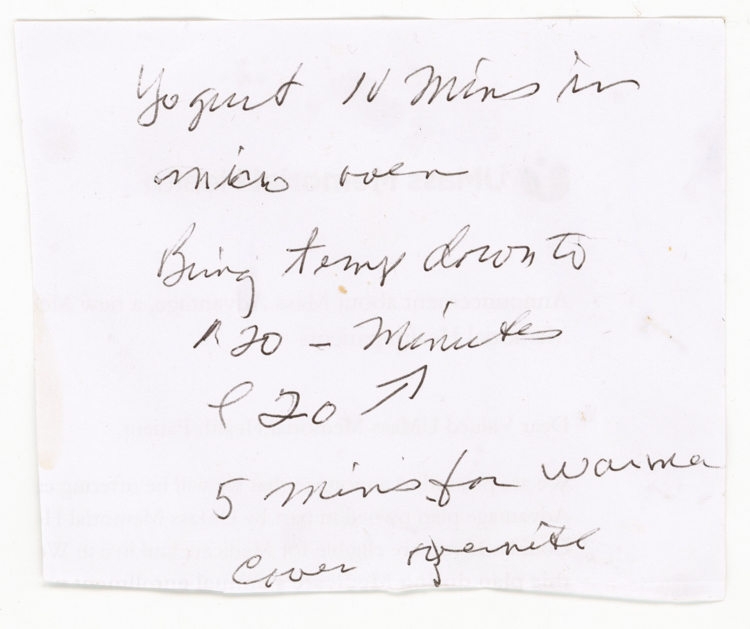 Yogurt 10 mins in
micro oven
Bring temp down to
120 Minutes
120 ↑
5 mins for warma
Cover overnite